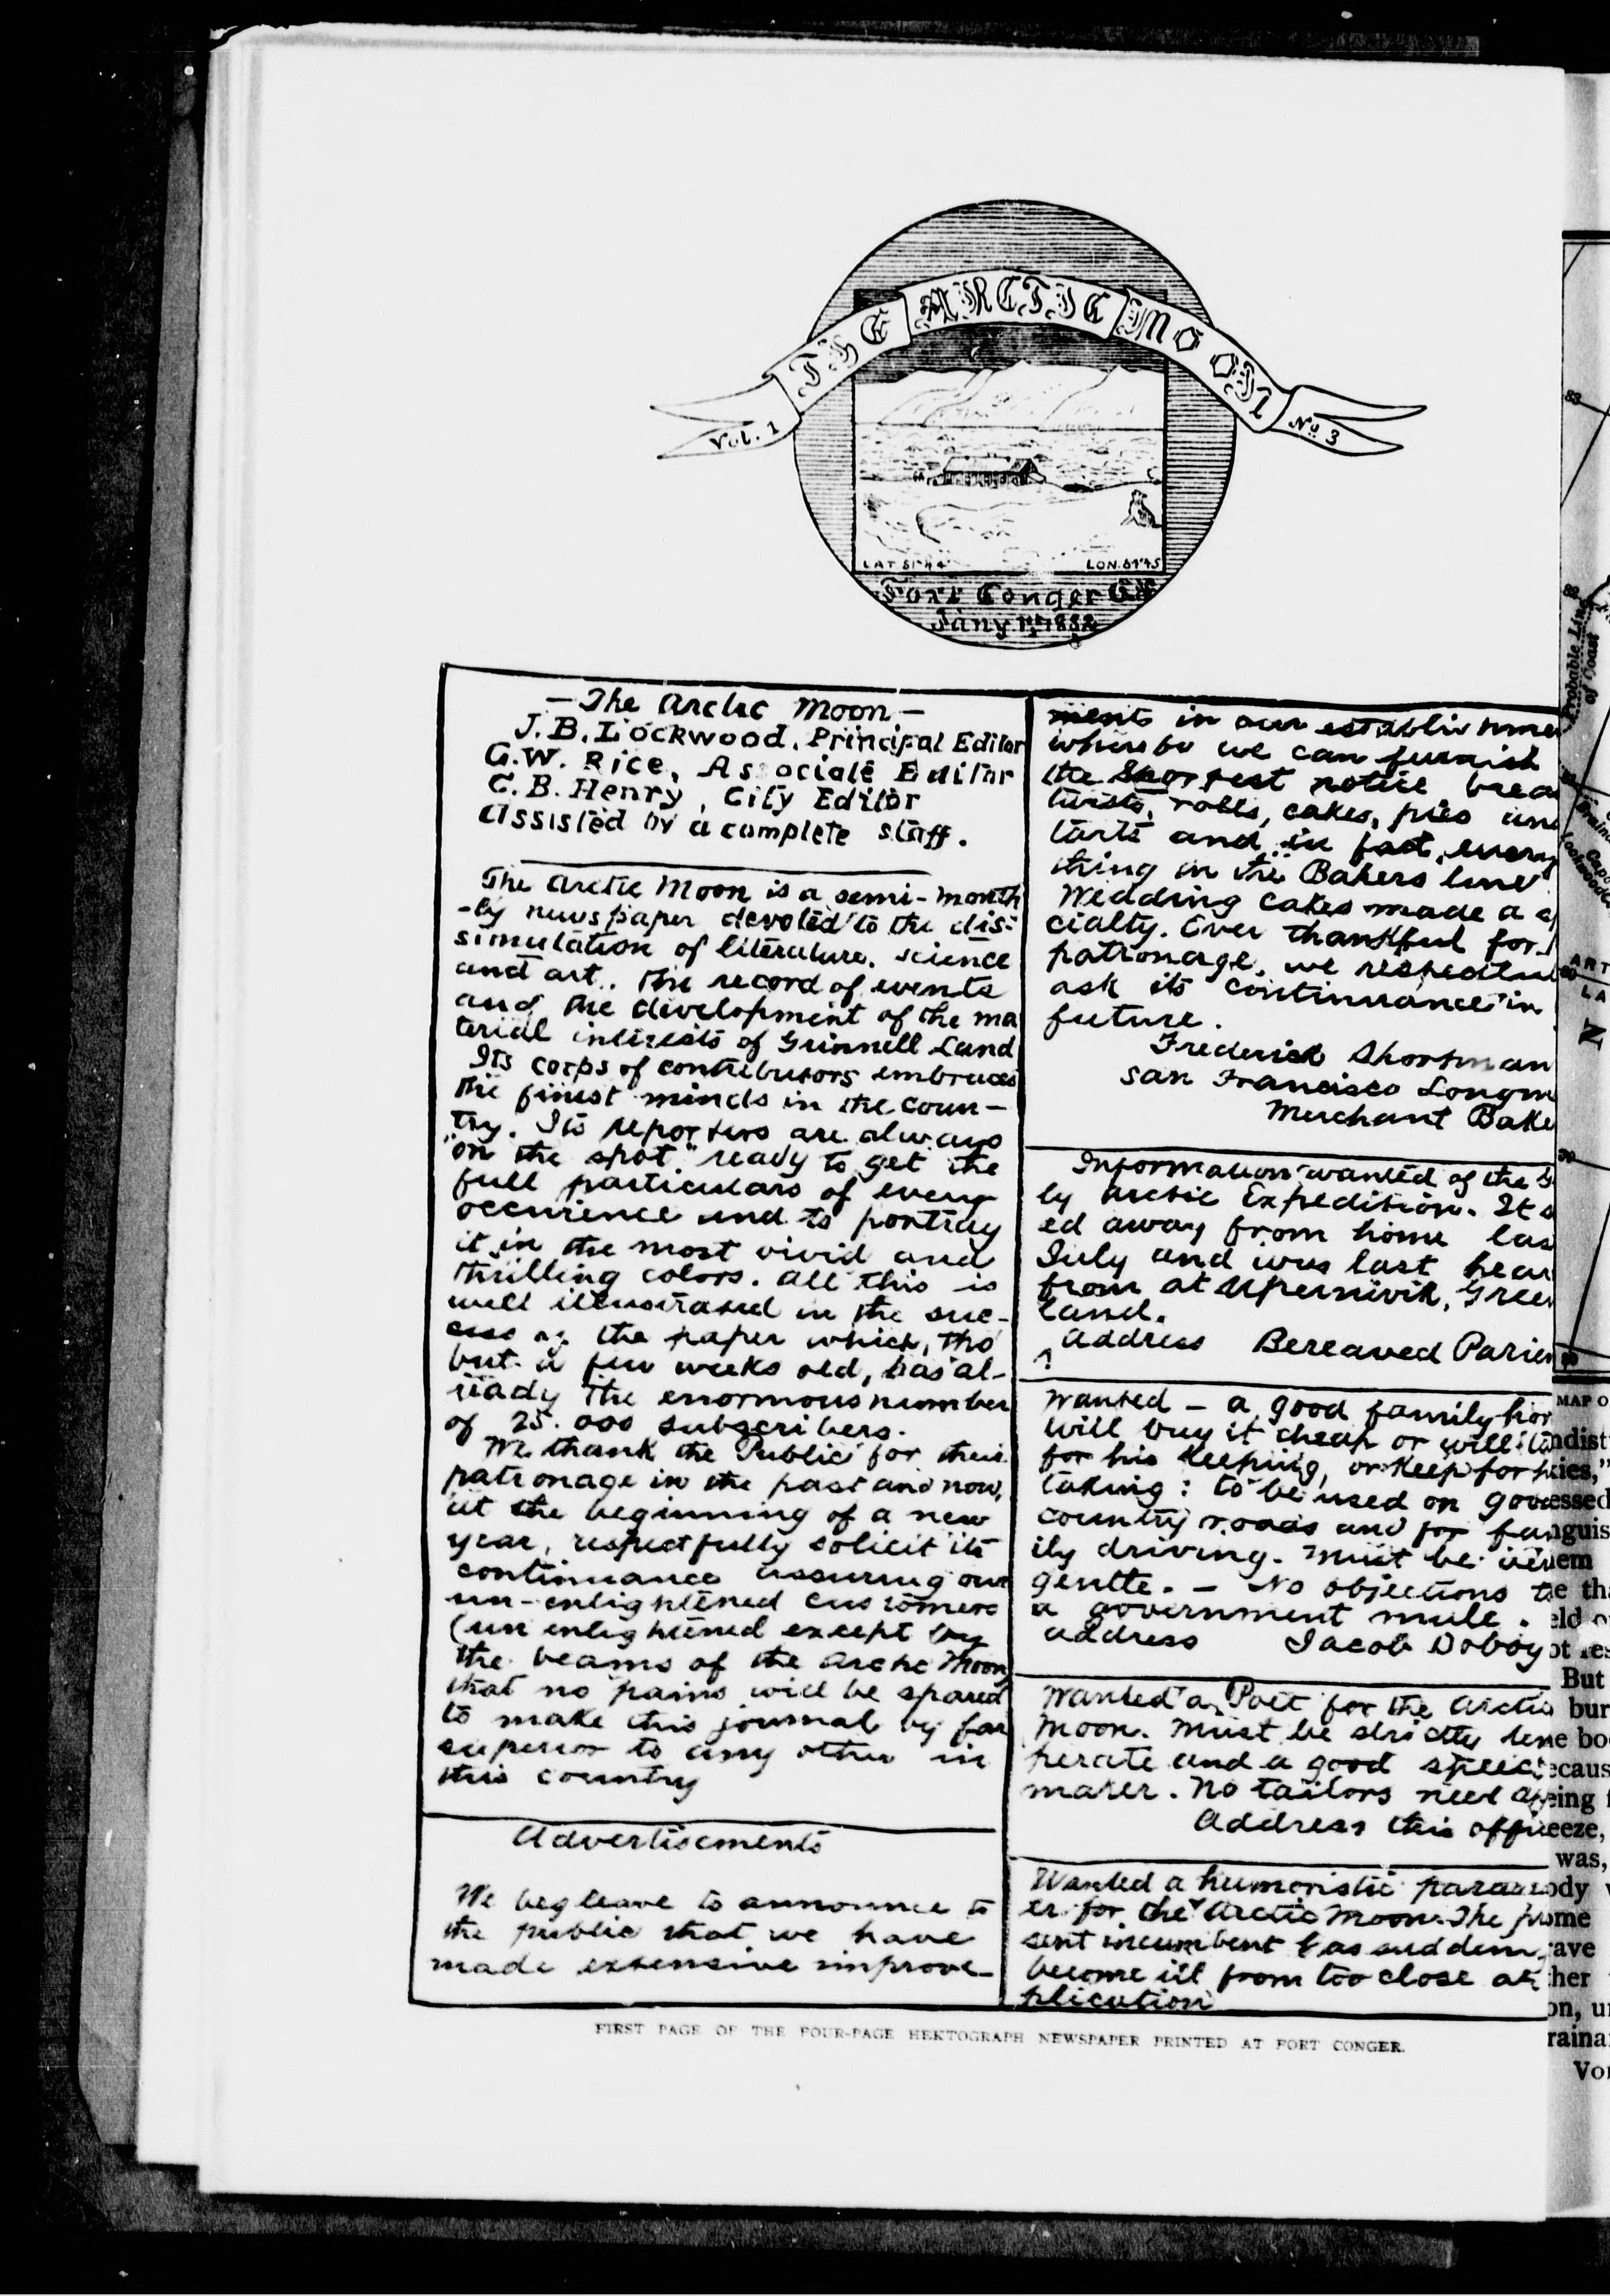 THE ARCTIC MOON
Vol. 1
No 3
LAT 81°44'
LON. 64°45
Fort Conger
Jany 1st 1882
— The Arctic Moon —
J. B. Lockwood, Principal Editor
G. W. Rice, Associate Editor
C. B. Henry, City Editor
Assisted by a complete staff.
The Arctic Moon is a semi-month
-ly newspaper devoted to the dis-
simulation of literature, science
and art.. The record of events
and the development of the ma
terial interests of Grinnell Land
Its corps of contributors embraces
the finest minds in the coun-
try. Its reporters are always
"on the spot." ready to get the
full particulars of every
occurience and to portray
it in the most vivid and
thrilling colors. All this is
well illustrated in the suc-
cess of the paper which, tho
but a few weeks old, has al-
ready the enormous number
of 25.000 subscribers.
We thank the Public for their
patronage in the past and now,
at the beginning of a new
year, respectfully solicit its
continuance assuring our
un-enlightened customers
(un enlightened except by
the beams of the Arctic Moon
that no pains will be spared
to make this journal by far
superior to any other in
this country
Advertisements
We beg leave to announce to
the public that we have
made extensive improve-
ments in our establishme
whereby we can furnish
the shortest notice brea
twists, rolls, cakes, pies an
tarts and in fact, every
thing in the Bakers line
Wedding cakes made a s
cialty. Ever thankful for
patronage, we respectful
ask its continuance in
future.
Frederick Shortman
San Francisco Longm
Merchant Bake
Information wanted of the
ly Arctic Expedition. It s
ed away from home las
July and was last hear
from at Upernivik, Green
land.
Address Bereaved Parien
Wanted — a good family hor
will buy it cheap or will
for his keeping, or keep for h
taking: to be used on gov
country roads and for fam
ily driving. Must be ver
gentle. — No objections t
a government mule.
address Jacob Doboy
Wanted a Poet for the Arctic
Moon. Must be strictly tem
perate and a good speec
maker. No tailors need ap
Address this office
Wanted a humoristic parag
er for the Arctic Moon. The pre
sent incumbent has sudden
become ill from too close ap
plication
FIRST PAGE OF THE FOUR-PAGE HEKTOGRAPH NEWSPAPER PRINTED AT FORT CONGER.
83
82
Probable Line
of Coast
Lockwood
ART
LA
N
MAP O
ndist
ies,"
essed
nguis
em
e th
eld o
ot res
But
bur
e bo
ecaus
eing
eeze,
was,
ody
ome
ave
her
on, u
raina
Vo